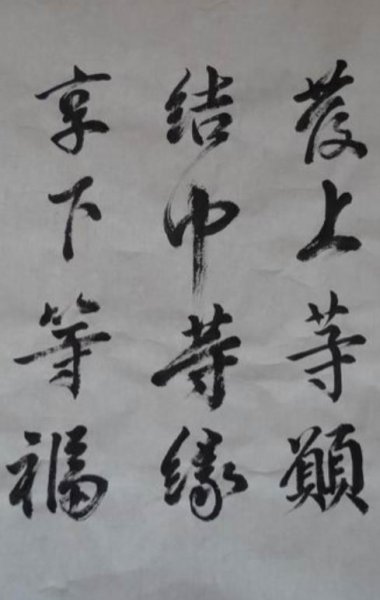 發上等願
结中等緣
享下等福